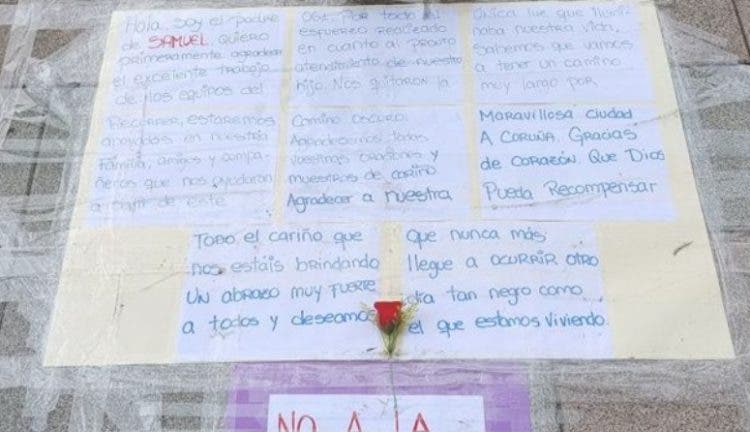 Hola soy el padre
de SAMUEL. QUIERO
primeramente agradecer
el excelente trabajo
de los equipos del
061. Por todo el
esfuerzo realizado
en cuanto al pronto
atendimiento de nuestro
hijo. Nos quitaron la
única luz que ilumi-
naba nuestra vida,
Sabemos que vamos
a tener un camino
muy largo por
Recorrer, estaremos
apoyados en nuestra
Familia, amigos y compa-
ñeros que nos ayudaran
a salir de este
Camino oscuro.
Agradecemos todas
vuestras oraciones y
muestras de cariño
Agradecer a nuestra
Maravillosa ciudad
A CORUÑA. Gracias
de corazón. Que Dios
Pueda Recompensar
Todo el cariño que
nos estáis brindando
UN abrazo muy fuerte
a todos y deseamos
Que nunca más
llegue a OCURRIR OTRO
día tan negro como
el que estamos viviendo.
NO A LA